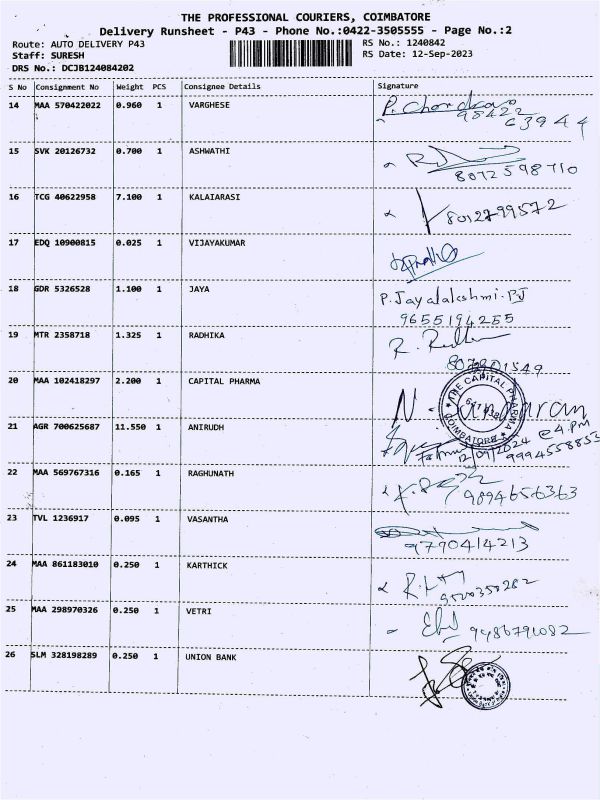 THE PROFESSIONAL COURIERS, COIMBATORE
Delivery Runsheet - P43 - Phone No.:0422-3505555 - Page No.:2
Route: AUTO DELIVERY P43 RS No.: 1240842
Staff: SURESH RS Date: 12-Sep-2023
DRS No.: DCJB124084202
S No Consignment No Weight PCS Consignee Details Signature
14 MAA 570422022 0.960 1 VARGHESE P. Chandra
98422
63944
15 SVK 20126732 0.700 1 ASHWATHI
8072598710
16 TCG 40622958 7.100 1 KALAIARASI 8012799572
17 EDQ 10900815 0.025 1 VIJAYAKUMAR
18 GDR 5326528 1.100 1 JAYA P. Jayalalakshmi. PJ
9655194255
19 MTR 2358718 1.325 1 RADHIKA R.
20 MAA 102418297 2.200 1 CAPITAL PHARMA N.
THE CAPITAL PHARMA
COIMBATORE
21 AGR 700625687 11.550 1 ANIRUDH
12/09/2024 @ 4.PM
9994558853
22 MAA 569767316 0.165 1 RAGHUNATH 9894656363
23 TVL 1236917 0.095 1 VASANTHA
9790414213
24 MAA 861183010 0.250 1 KARTHICK
9500350282
25 MAA 298970326 0.250 1 VETRI 9486791082
26 SLM 328198289 0.250 1 UNION BANK